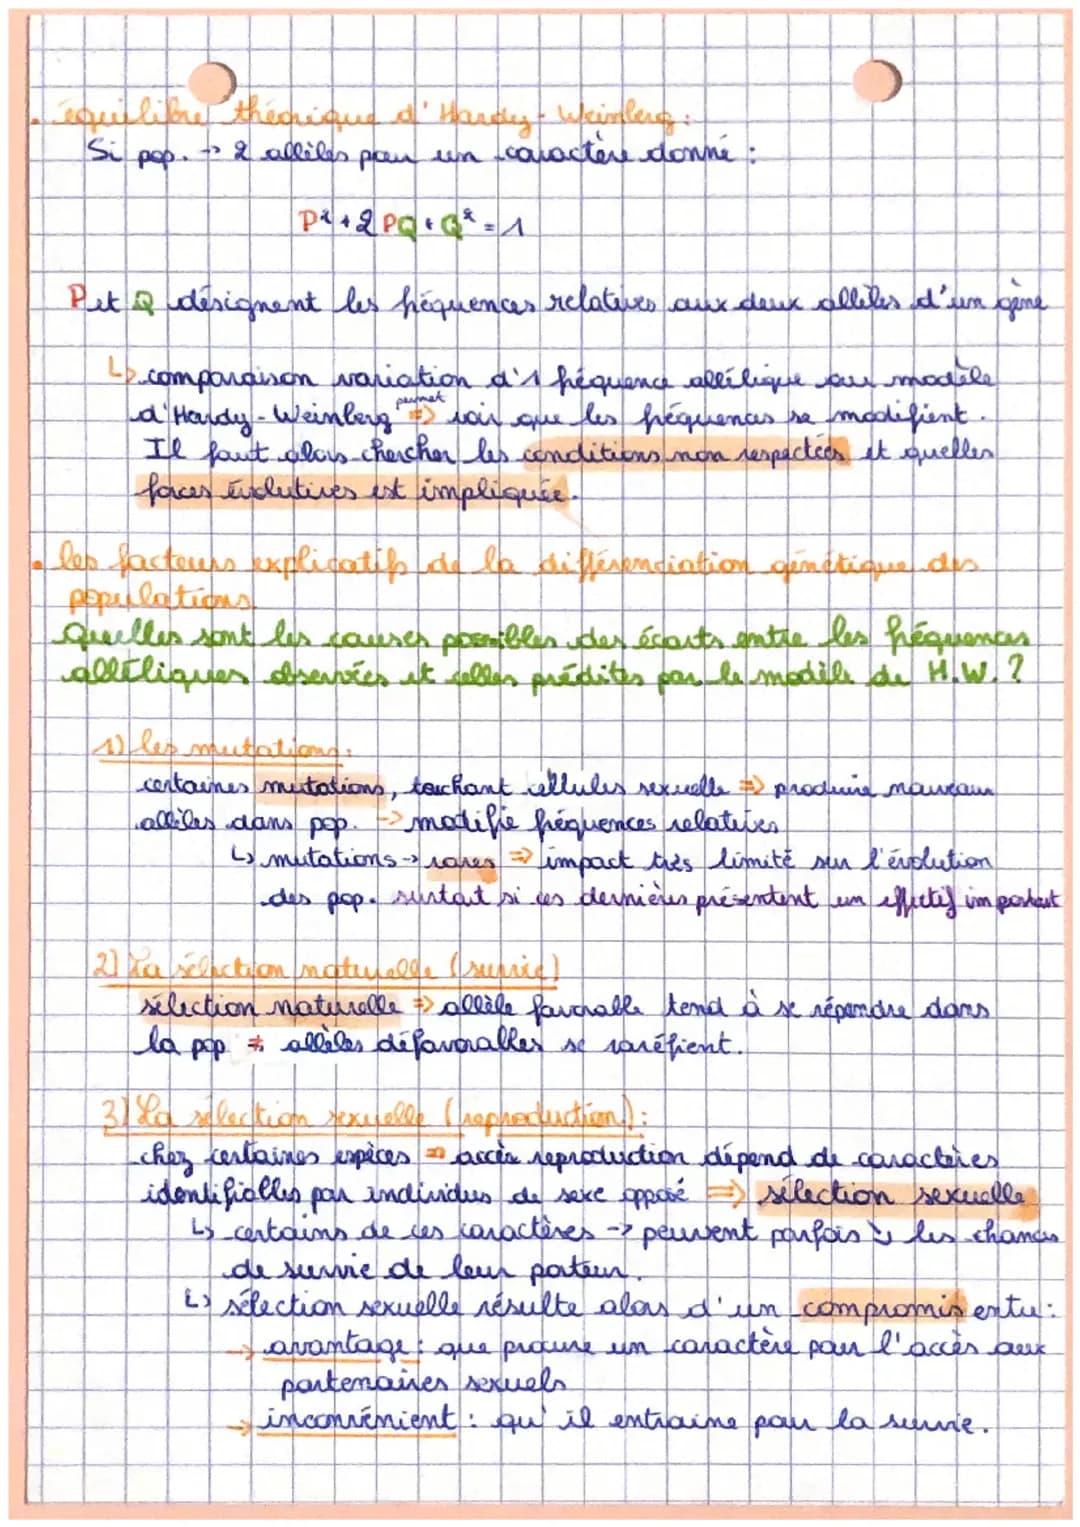 . équilibre théorique d'Hardy-Weinberg :
Si pop. -> 2 allèles pour un caractère donné :
P² + 2 PQ + Q² = 1
P et Q désignent les fréquences relatives aux deux allèles d'un gène
↳ comparaison variation d'1 fréquence allélique au modèle
permet
d'Hardy-Weinberg => voir que les fréquences se modifient.
Il faut alors chercher les conditions non respectées et quelles
forces évolutives est impliquée.
. les facteurs explicatifs de la différenciation génétique des
populations.
Quelles sont les causes possibles des écarts entre les fréquences
alléliques observées et celles prédites par le modèle de H.W. ?
1) les mutations:
certaines mutations, touchant cellules sexuelle => produire nouveaux
allèles dans pop. -> modifie fréquences relatives
↳ mutations -> rares => impact très limité sur l'évolution
des pop. surtout si ces dernières présentent un effectif important
2) La sélection naturelle (survie)
sélection naturelle => allèle favorable tend à se répandre dans
la pop ≠ allèles défavorables se raréfient.
3) La sélection sexuelle (reproduction) :
chez certaines espèces => accès reproduction dépend de caractères
identifiables par individus de sexe opposé => sélection sexuelle
↳ certains de ces caractères -> peuvent parfois ↘ les chances
de survie de leur porteur.
↳ sélection sexuelle résulte alors d'un compromis entre :
-> avantage : que procure un caractère pour l'accès aux
partenaires sexuels
-> inconvénient : qu'il entraine pour la survie.